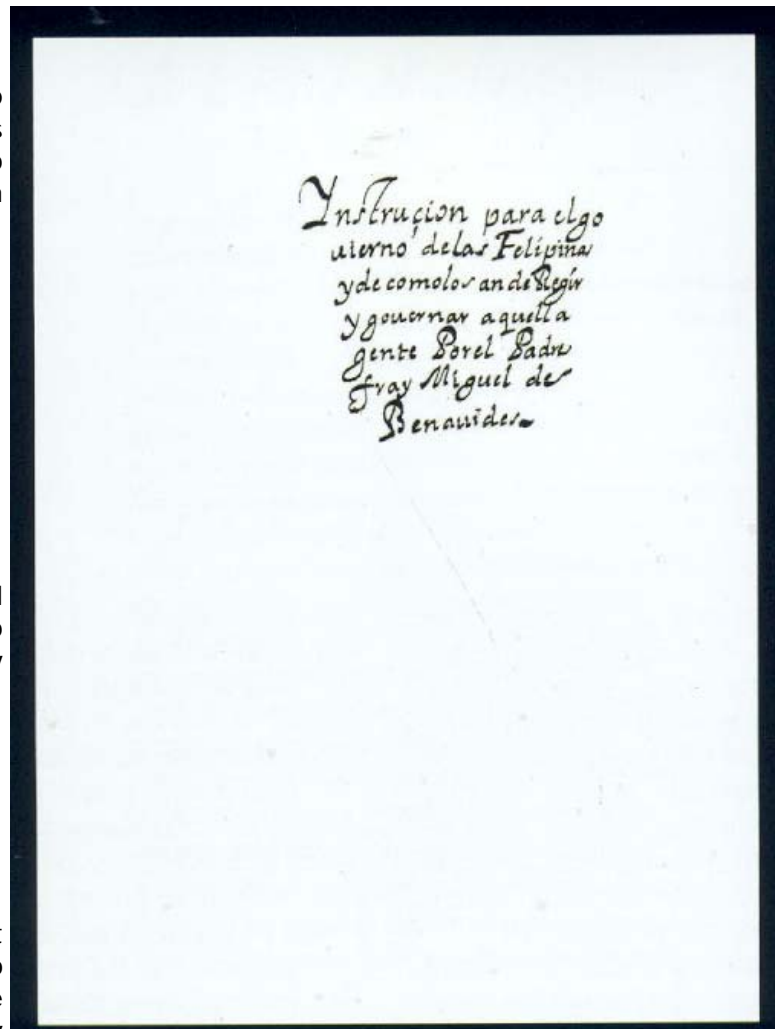 Ynstruçion para elgo
uierno delas Felipinas
y de comolos an de Regir
y gouernar aquella
gente Porel Padre
fray Miguel de
Benauides